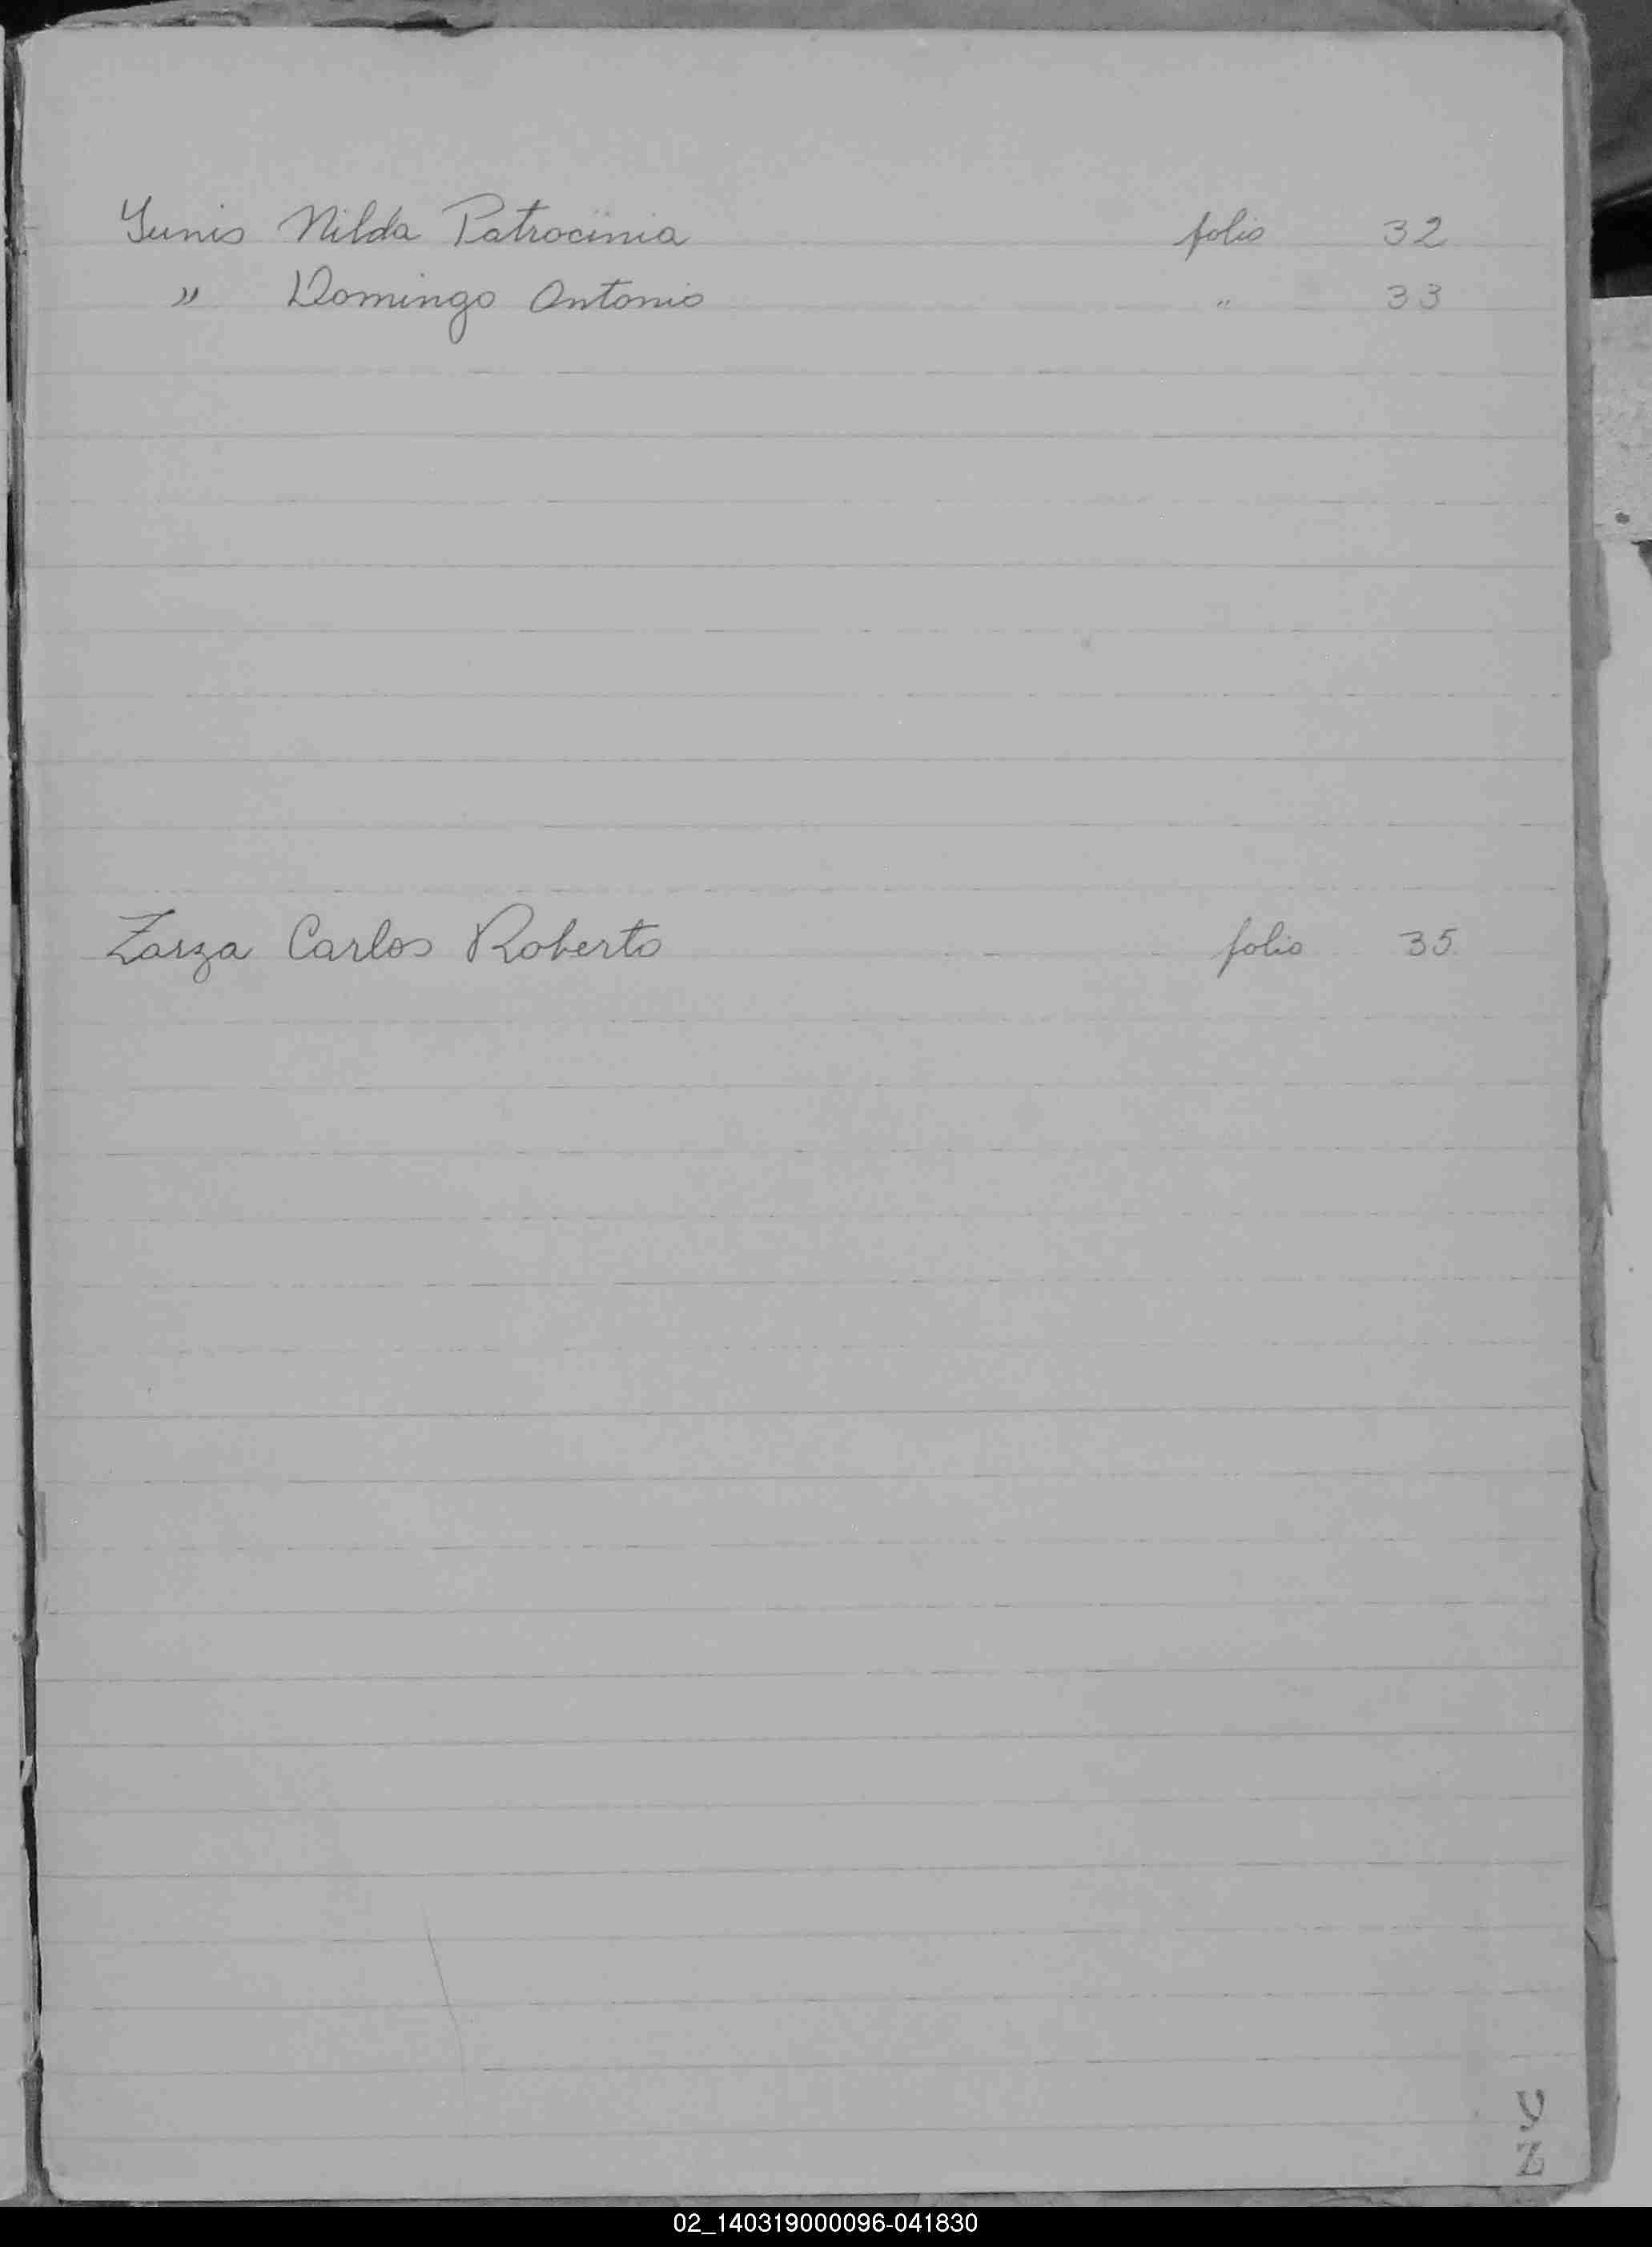 Yunis Nilda Patrocinia folio 32
" Domingo Antonio " 33
Zarza Carlos Roberto folio 35
Y
Z
02_140319000096-041830